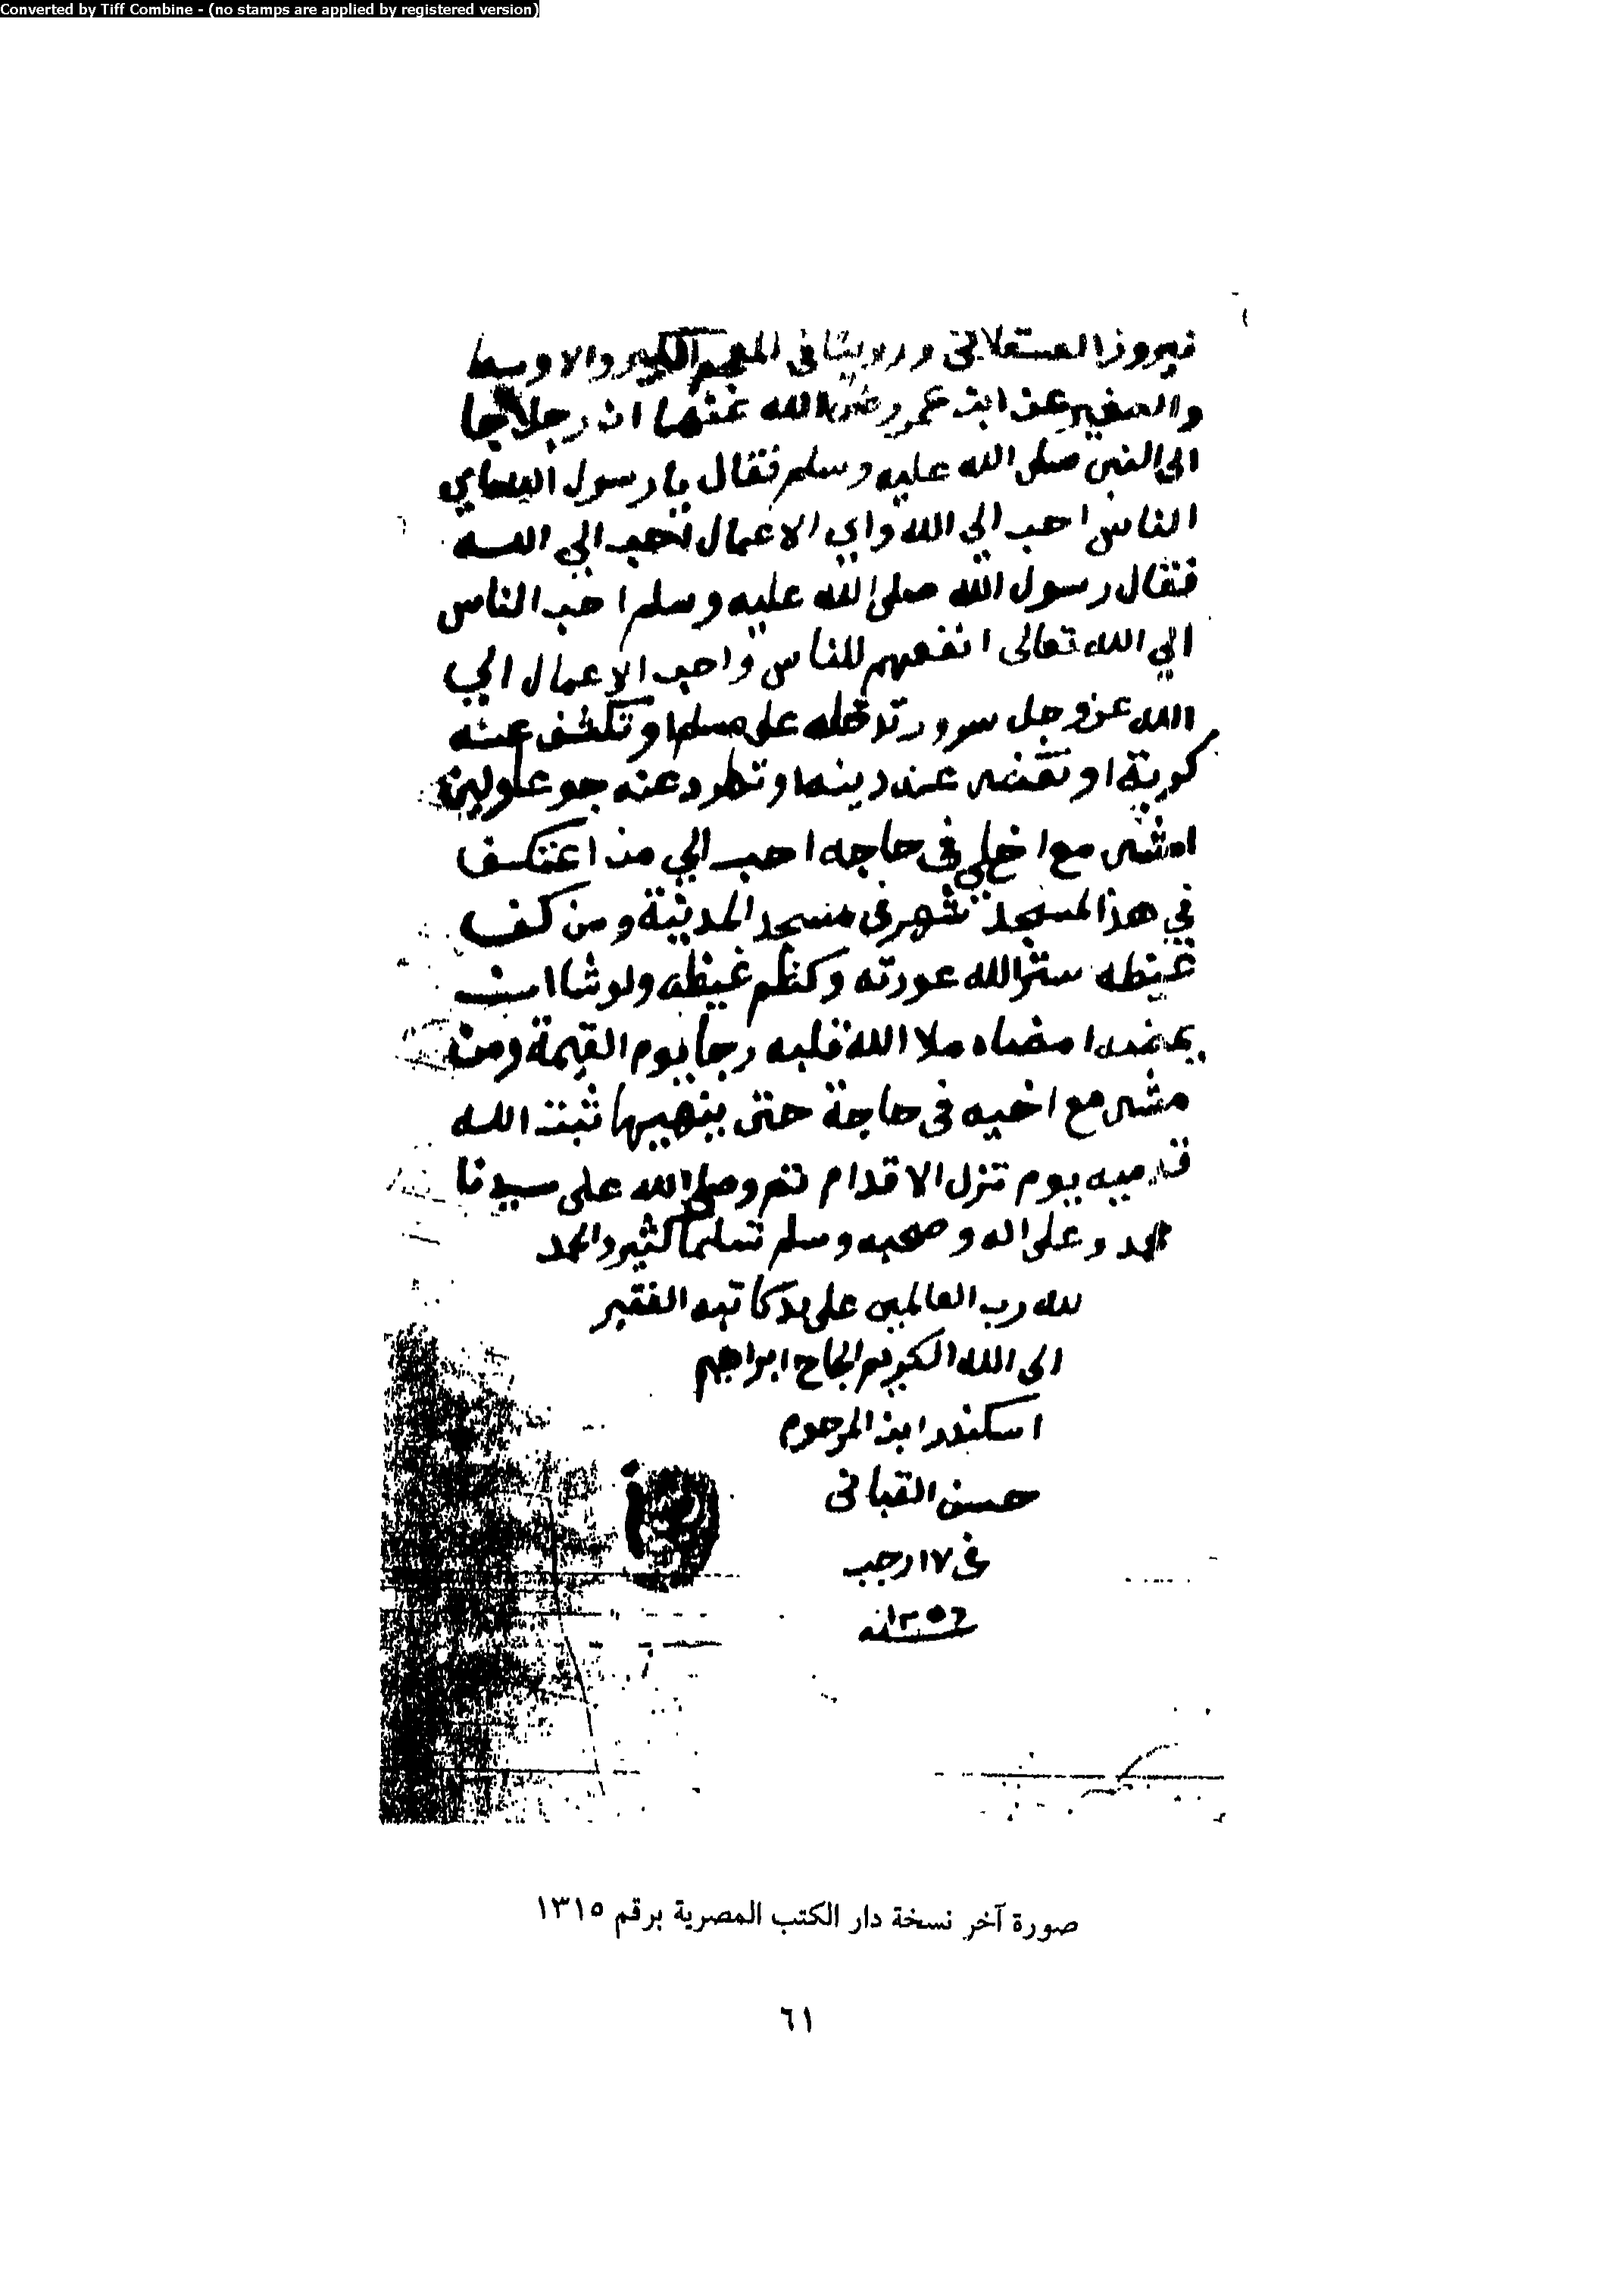 Converted by Tiff Combine - (no stamps are applied by registered version)
نيروز العسقلاني وروينا في المعجم الكبير والاوسط
والصغير عن ابن عمر رضي الله عنهما ان رجلا جا
الى النبي صلى الله عليه وسلم فقال يا رسول الله اي
الناس احب الي الله واي الاعمال احب الي الله
فقال رسول الله صلى الله عليه وسلم احب الناس
الي الله تعالى انفعهم للناس واحب الاعمال الي
الله عز وجل سرور تدخله على مسلم او تكشف عنه
كربة او تقضى عنه دينا او تطرد عنه جوعا ولين
امشى مع اخ لي في حاجه احب الي من اعتكف
في هذا المسجد شهر في مسجد المدينة ومن كف
غيظه ستر الله عورته وكظم غيظه ولو شا ان
يمضه امضاه ملا الله قلبه رجا يوم القيمة ومن
مشى مع اخيه في حاجة حتى ينهيها ثبت الله
قدميه يوم تزل الاقدام تم وصلى الله على سيدنا
محمد وعلى اله وصحبه وسلم تسليما كثير والحمد
لله رب العالمين على يد كاتبه الفقير
الى الله الكريم الحاج ابراهيم
اسكندر ابن المرحوم
حسن القباني
في ١٧ رجب
سنة ١٣٥٦
صورة آخر نسخة دار الكتب المصرية برقم ١٣١٥
٦١